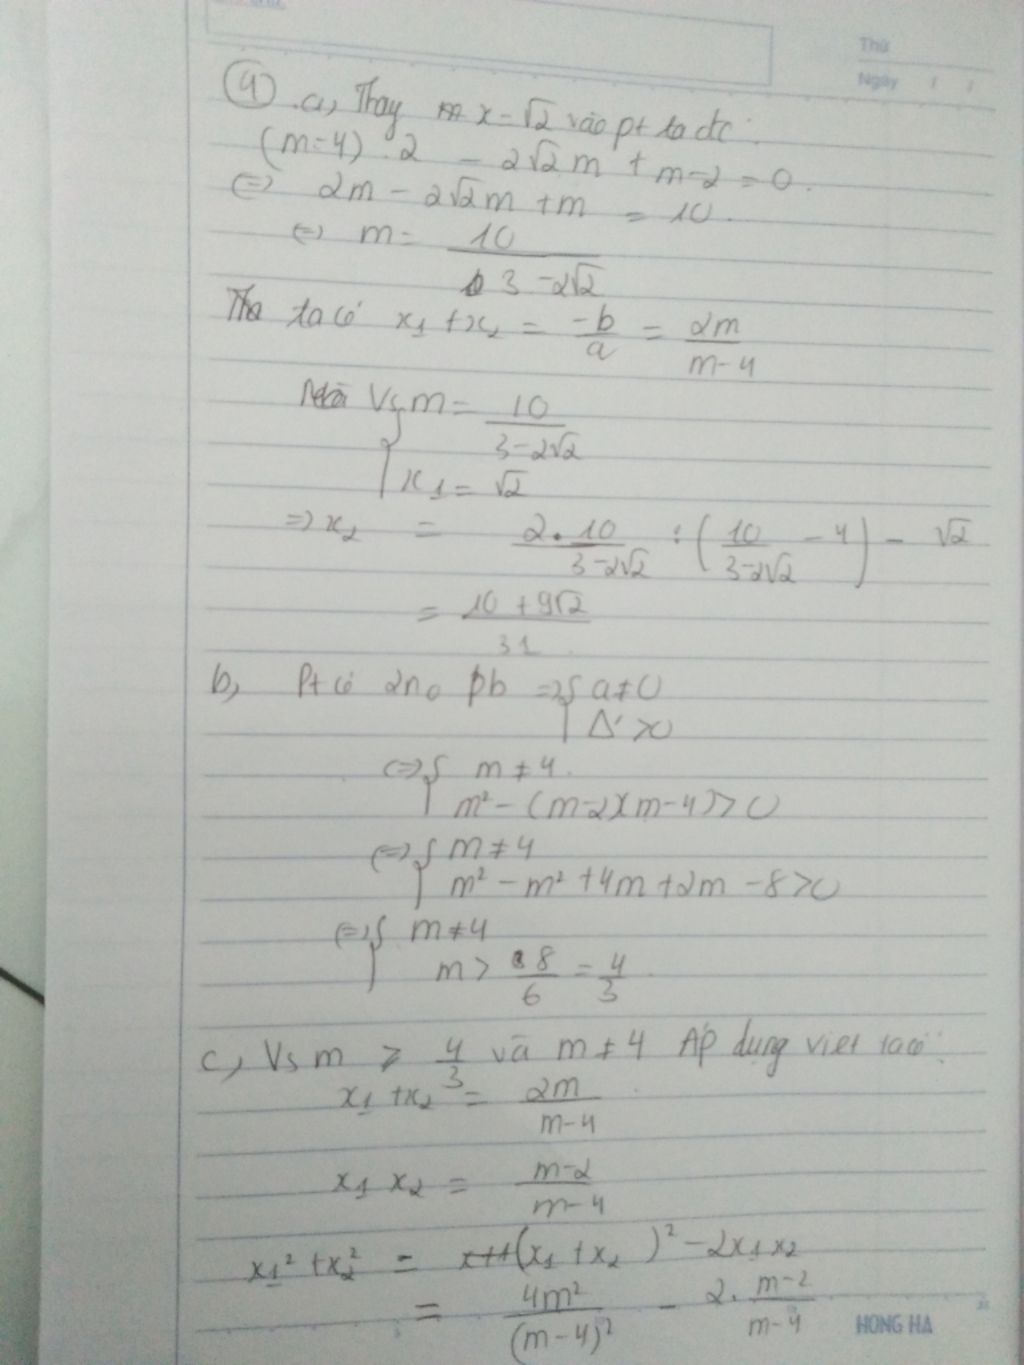 Thứ
Ngày / /
(4) .a, Thay x = √2 vào pt ta đc:
(m-4) . 2 - 2√2m + m-2 = 0.
<=> 2m - 2√2m + m = 10.
<=> m = 10/(3-2√2)
ta có x₁ + x₂ = -b/a = 2m/(m-4)
Vs { m = 10/(3-2√2)
x₁ = √2
=> x₂ = 2.10/(3-2√2) : (10/(3-2√2) - 4) - √2
= (10+9√2)/31
b, Pt có 2no pb => { a ≠ 0
Δ' > 0
<=> { m ≠ 4.
m² - (m-2)(m-4) > 0
<=> { m ≠ 4
m² - m² + 4m + 2m - 8 > 0
<=> { m ≠ 4
m > 8/6 = 4/3
c, Vs m > 4/3 và m ≠ 4 Áp dụng viet ta có:
x₁ + x₂ = 2m/(m-4)
x₁ x₂ = (m-2)/(m-4)
x₁² + x₂² = (x₁ + x₂)² - 2x₁x₂
= 4m²/(m-4)² - 2. (m-2)/(m-4)
HONG HA